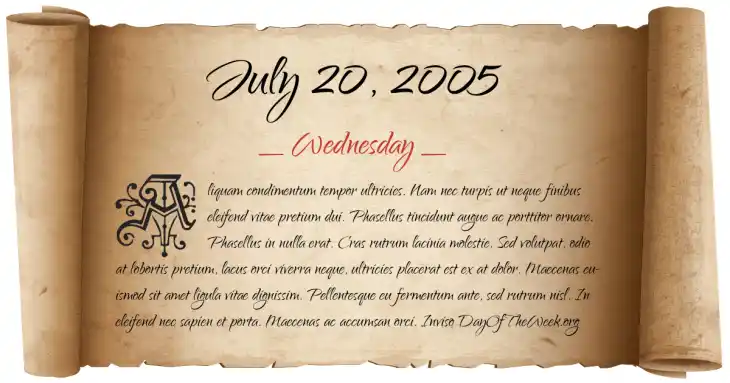 July 20, 2005
_ Wednesday _
Aliquam condimentum tempor ultricies. Nam nec turpis ut neque finibus
eleifend vitae pretium dui. Phasellus tincidunt augue ac porttitor ornare.
Phasellus in nulla erat. Cras rutrum lacinia molestie. Sed volutpat, odio
at lobortis pretium, lacus orci viverra neque, ultricies placerat est ex at dolor. Maecenas eu-
ismod sit amet ligula vitae dignissim. Pellentesque eu fermentum ante, sed rutrum nisl. In
eleifend nec sapien et porta. Maecenas ac accumsan orci. Inviso DayOfTheWeek.org